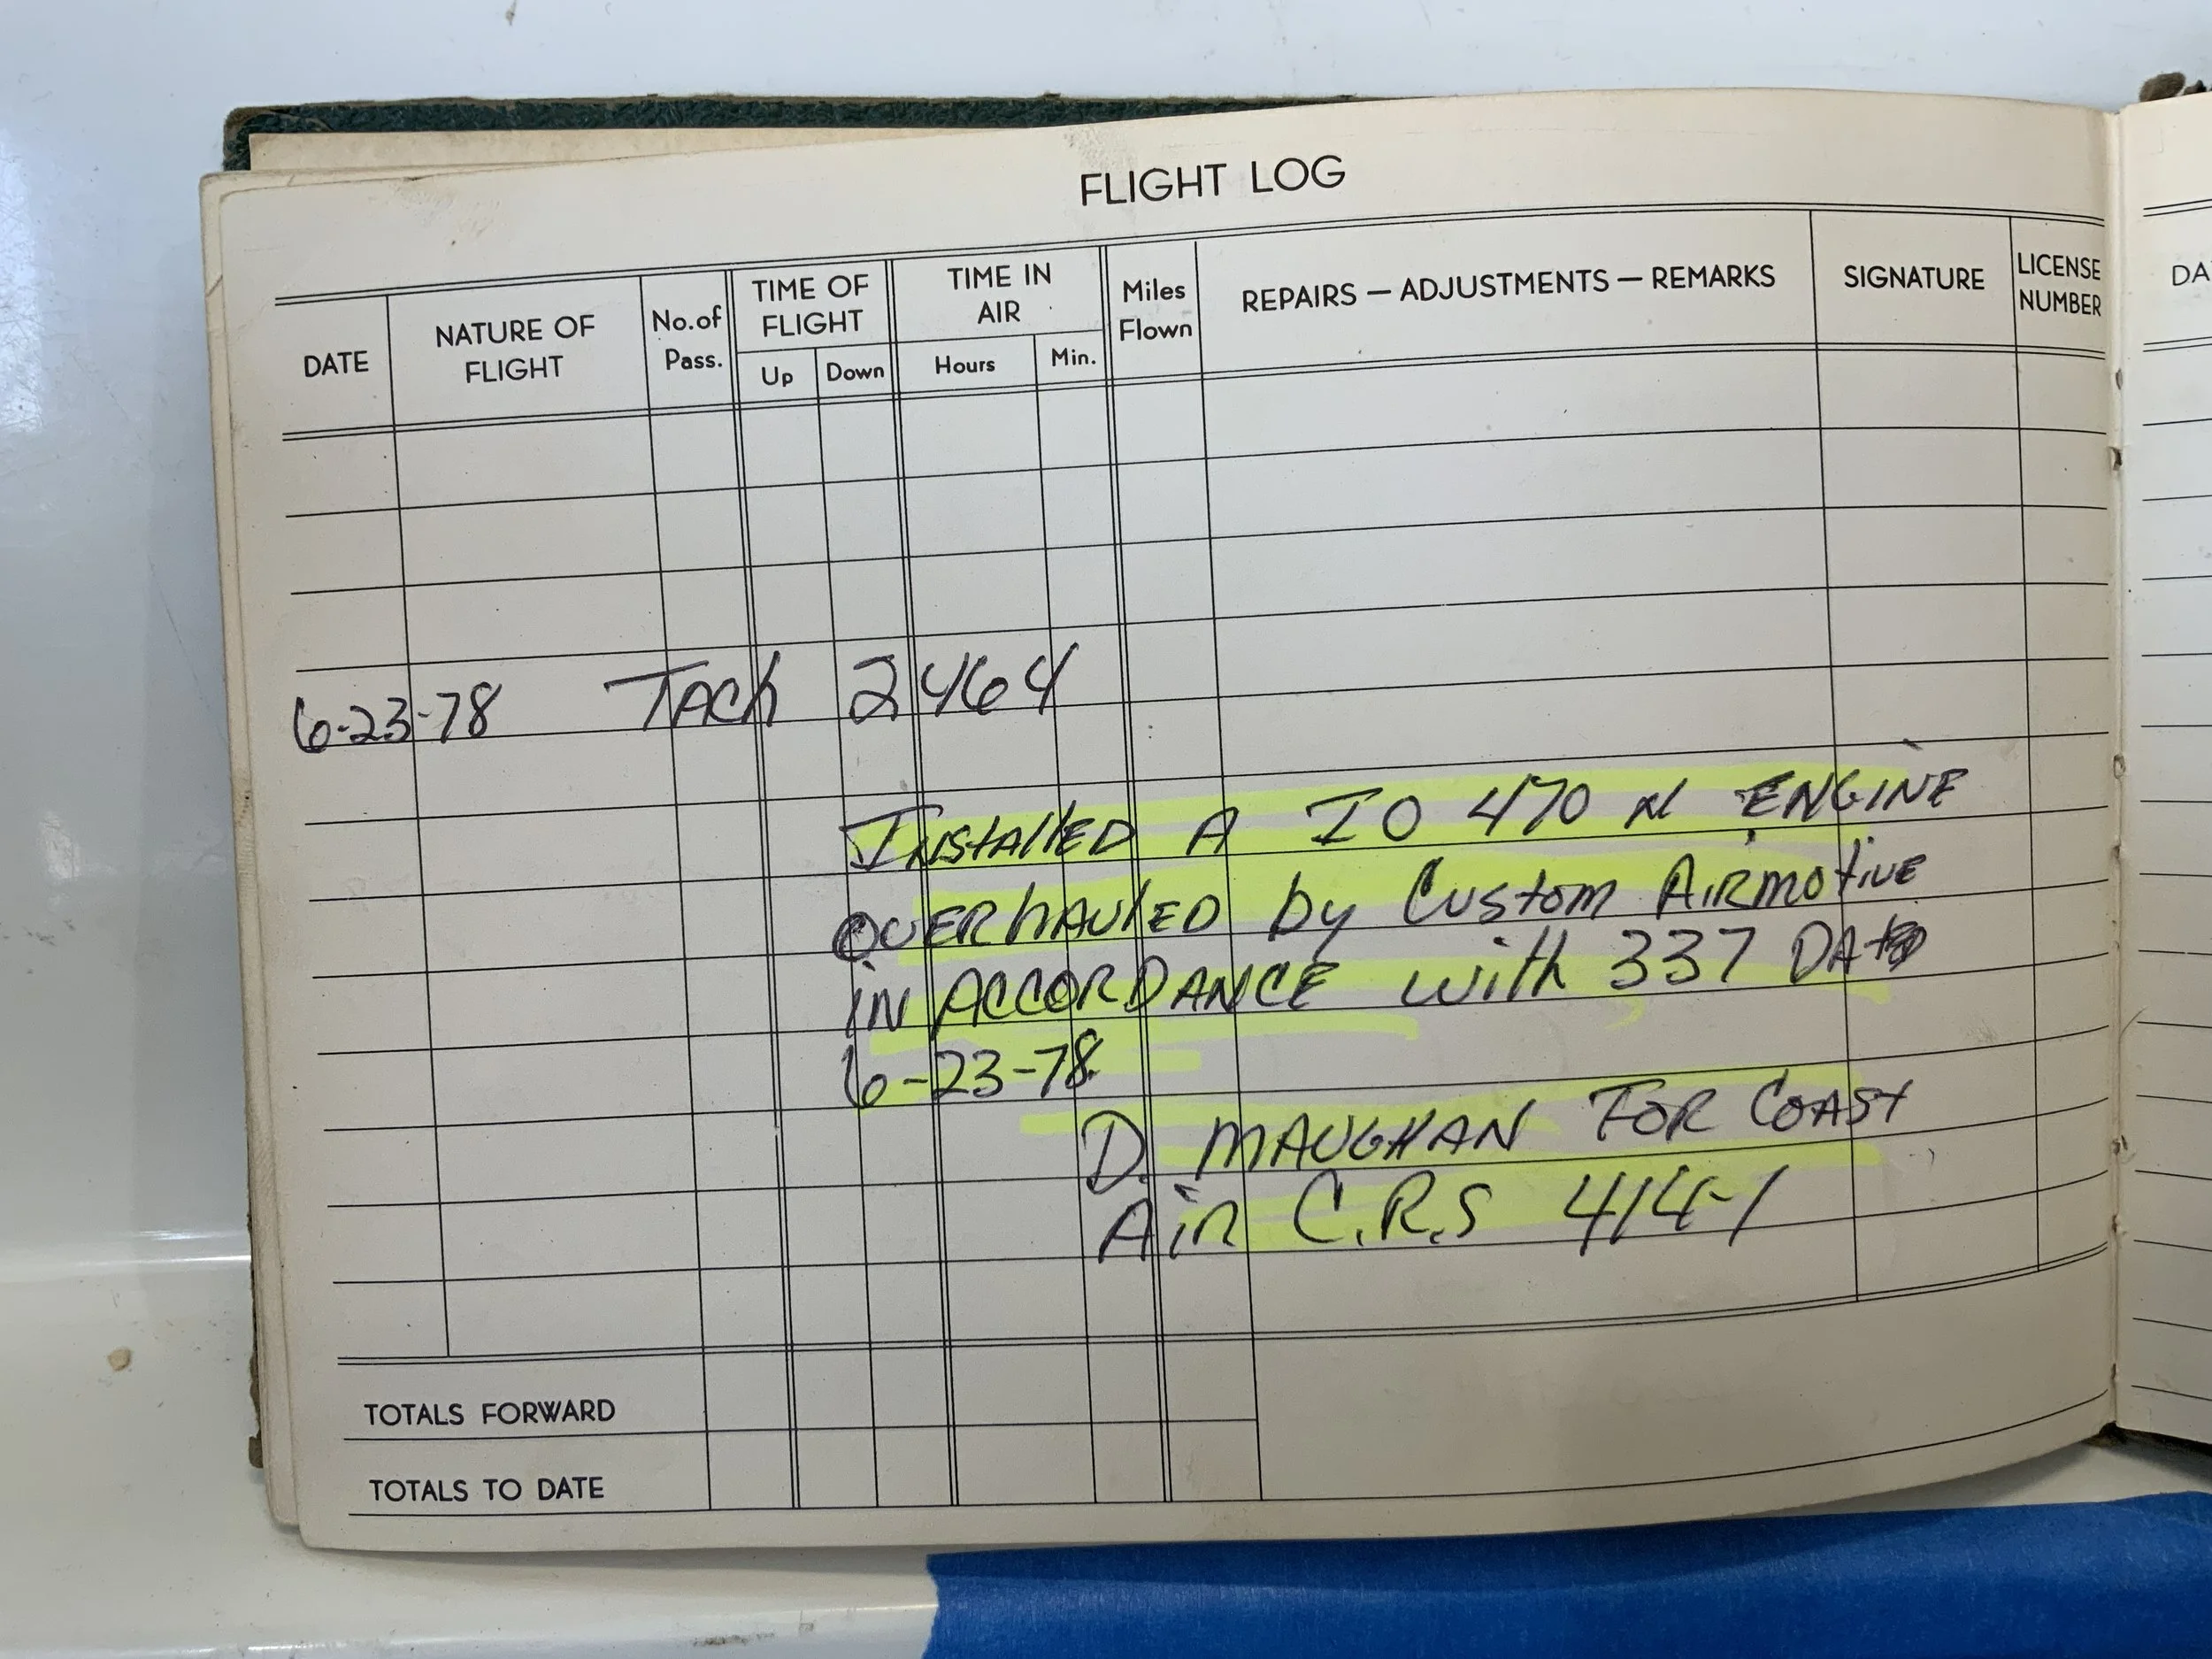 FLIGHT LOG
DATE
NATURE OF FLIGHT
No. of Pass.
TIME OF FLIGHT
Up
Down
TIME IN AIR
Hours
Min.
Miles Flown
REPAIRS — ADJUSTMENTS — REMARKS
SIGNATURE
LICENSE NUMBER
DA
6-23-78 TACH 2464
INSTALLED A IO 470 N ENGINE
OVERHAULED by CUSTOM AIRMOTIVE
IN ACCORDANCE with 337 DATED
6-23-78
D. MAUGHAN FOR COAST
AIR C.R.S 414-1
TOTALS FORWARD
TOTALS TO DATE